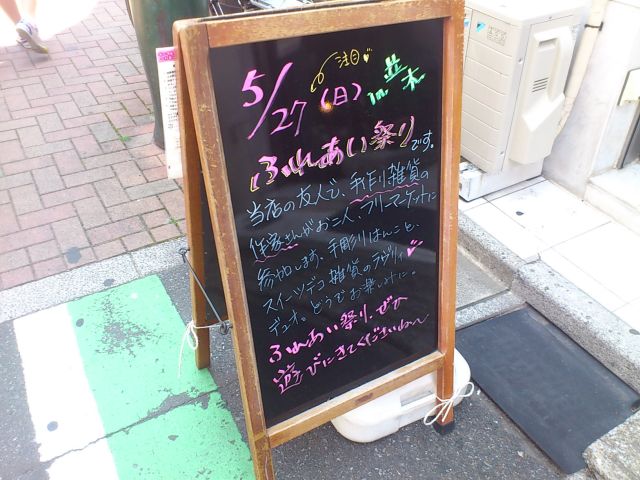 注目
5/27(日) in 並木
ふれあい祭りです。
当店の友人で、手作り雑貨の
作家さんがお二人、フリーマーケットに
参加します。手彫りはんこと、
スイーツデコ雑貨のラヴリィ
デュオ。どうぞお楽しみに。
ふれあい祭り、ぜひ
遊びにきてくださいね〜